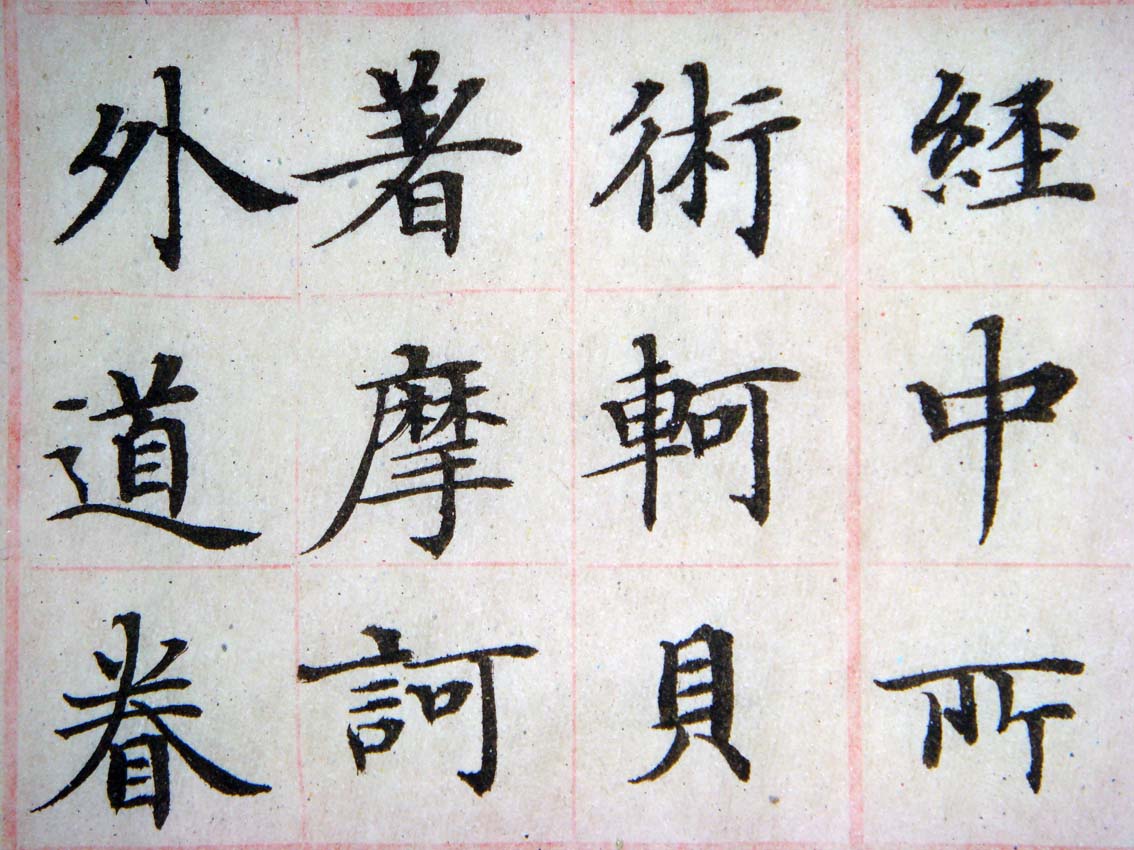 経中所
術軻貝
著摩訶
外道眷